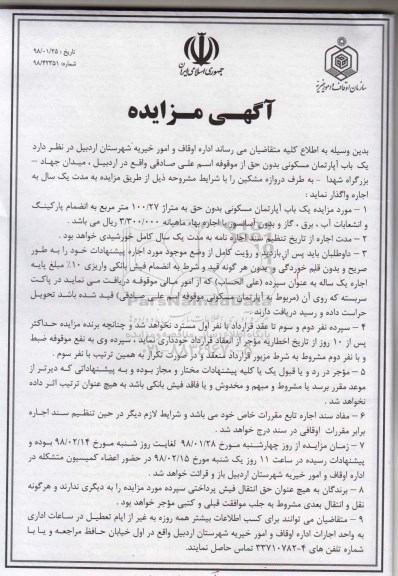 تاریخ : ۹۸/۰۱/۲۵
شماره: ۹۸/۴۲۳۵۱
جمهوری اسلامی ایران
سازمان اوقاف و امور خیریه
آگهی مزایده
بدین وسیله به اطلاع کلیه متقاضیان می رساند اداره اوقاف و امور خیریه شهرستان اردبیل در نظر دارد
یک باب آپارتمان مسکونی بدون حق از موقوفه اسم علی صادقی واقع در اردبیل ، میدان جهاد –
بزرگراه شهدا – به طرف دروازه مشکین را با شرایط مشروحه ذیل از طریق مزایده به مدت یک سال به
اجاره واگذار نماید :
۱ – مورد مزایده یک باب آپارتمان مسکونی بدون حق به متراژ ۱۰۰/۲۷ متر مربع به انضمام پارکینگ
و انشعابات آب ، برق ، گاز و بدون آسانسور با اجاره بهاء ماهیانه ۳/۳۰۰/۰۰۰ ریال می باشد .
۲ – مدت اجاره از تاریخ تنظیم سند اجاره نامه به مدت یک سال کامل خورشیدی خواهد بود .
۳ – داوطلبان باید پس از بازدید و رؤیت کامل از وضع موجود مورد اجاره پیشنهادات خود را به طور
صریح و بدون قلم خوردگی و بدون هر گونه قید و شرط به انضمام فیش بانکی واریزی ۱۰٪ مبلغ پایه
اجاره یک ساله به عنوان سپرده (علی الحساب) که از امور مالی موقوفه دریافت می نماید در پاکت
سربسته که روی آن (مربوط به آپارتمان مسکونی موقوفه اسم علی صادقی) قید شده باشد تحویل
حراست داده و رسید دریافت دارند .
۴ – سپرده نفر دوم و سوم تا عقد قرارداد با نفر اول مسترد نخواهد شد و چنانچه برنده مزایده حداکثر
پس از ۱۰ روز از تاریخ اخطاریه مؤجر از انعقاد قرارداد خودداری نماید ، سپرده وی به نفع موقوفه ضبط
و با نفر دوم مشروط به شرط مزبور قرارداد منعقد و در صورت تکرار به همین ترتیب با نفر سوم .
۵ – مؤجر در رد و یا قبول یک یا کلیه پیشنهادات مختار و مجاز بوده و به پیشنهاداتی که دیرتر از
موعد مقرر برسد یا مشروط و مبهم و مخدوش و یا فاقد فیش بانکی باشد به هیچ عنوان ترتیب اثر داده
نخواهد شد .
۶ – مفاد سند اجاره تابع مقررات خاص خود می باشد و شرایط لازم دیگر در حین تنظیم سند اجاره
برابر مقررات اوقافی در سند درج خواهد شد .
۷ – زمان مزایده از روز چهارشنبه مورخ ۹۸/۰۱/۲۸ لغایت روز شنبه مورخ ۹۸/۰۲/۱۴ بوده و
پیشنهادات رسیده در ساعت ۱۱ روز یک شنبه مورخ ۹۸/۰۲/۱۵ در حضور اعضاء کمیسیون متشکله در
اداره اوقاف و امور خیریه شهرستان اردبیل باز و قرائت خواهد شد .
۸ – برندگان به هیچ عنوان حق انتقال فیش پرداختی سپرده مورد مزایده را به دیگری ندارند و هرگونه
نقل و انتقال بعدی مشروط به جلب موافقت قبلی و کتبی مؤجر خواهد بود .
۹ – متقاضیان می توانند برای کسب اطلاعات بیشتر همه روزه به غیر از ایام تعطیل در ساعات اداری
به واحد اجارات اداره اوقاف و امور خیریه شهرستان اردبیل واقع در اول خیابان حافظ مراجعه و یا با
شماره تلفن های ۴-۳۳۷۱۰۷۸۲ تماس حاصل نمایند.